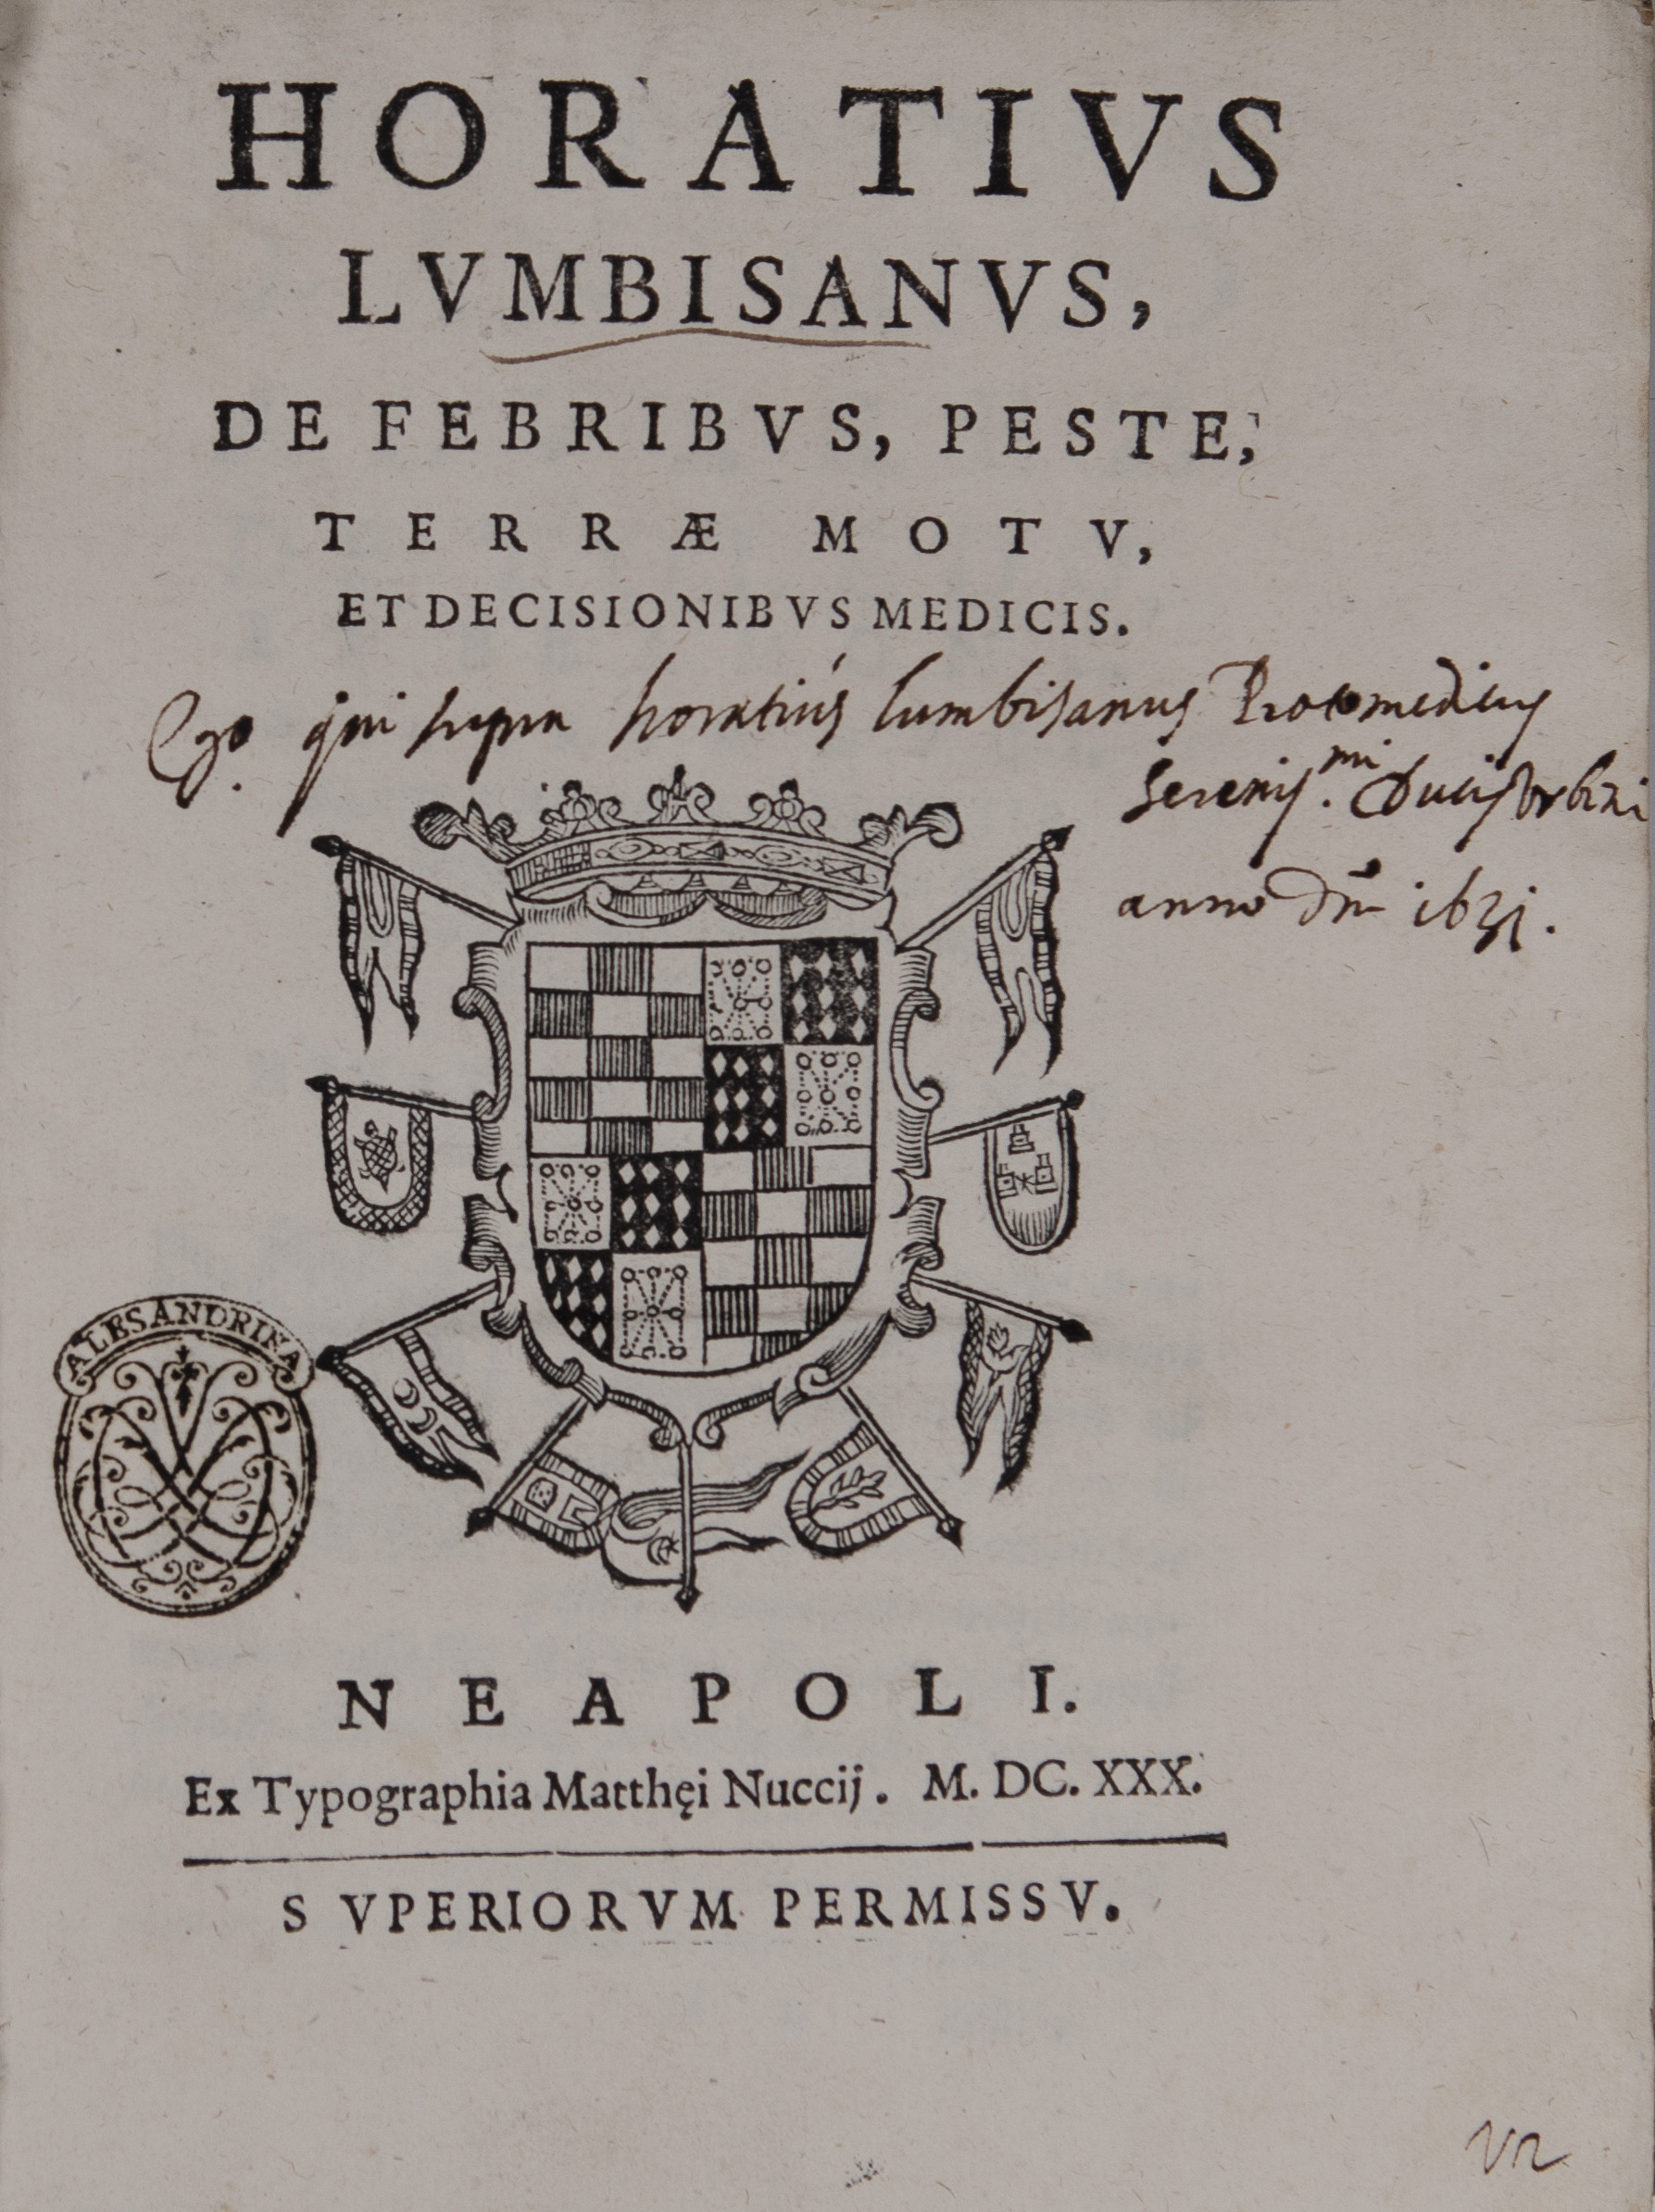 HORATIVS
LVMBISANVS,
DE FEBRIBVS, PESTE,
TERRÆ MOTV,
ET DECISIONIBVS MEDICIS.
Ego qui supra horatius lumbisanus Protomedicus
Serenis.mi Ducis Vrbini
anno Dni 1631.
ALESANDRINA
NEAPOLI.
Ex Typographia Matthęi Nuccij. M. DC. XXX.
SVPERIORVM PERMISSV.